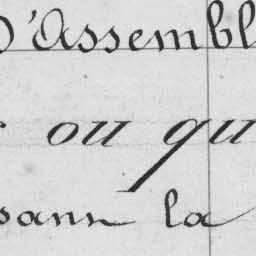 D'Assembl
ou qu
sann la